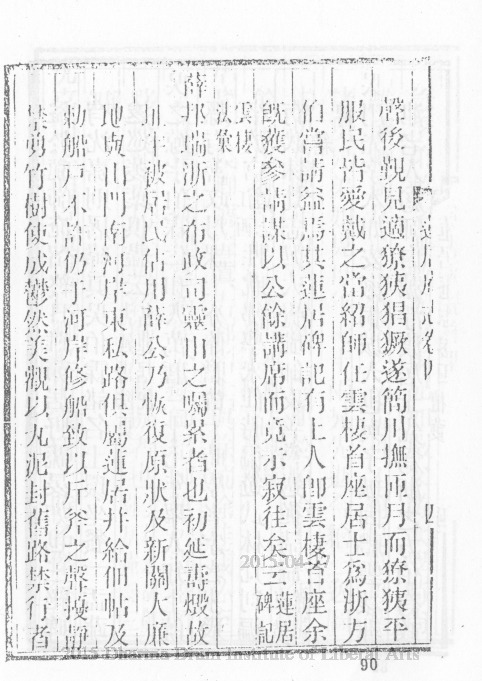 蓮居庵志卷四
四
聲後覲見適獠獠夷猖獗遂簡川撫匝月而獠夷平
服民皆愛戴之當紹師任雲棲首座居士爲浙方
伯嘗請益焉其蓮居碑記有上人卽雲棲首座余
旣獲參請謀以公餘講席而竟示寂往矣云蓮居碑記
雲棲法彙
薛邦瑞浙之布政司靈山之囑累者也初延壽燬故
址半被居民佔用薛公乃恢復原狀及新闢大雁
地與山門南河岸東私路俱屬蓮居幷給佃帖及
勅船戸不許仍于河岸修船致以斤斧之聲擾靜
禁剪竹樹使成鬱然美觀以丸泥封舊路禁行者
2015-04-27
2015 Dharma Drum Institute of Liberal Arts
90